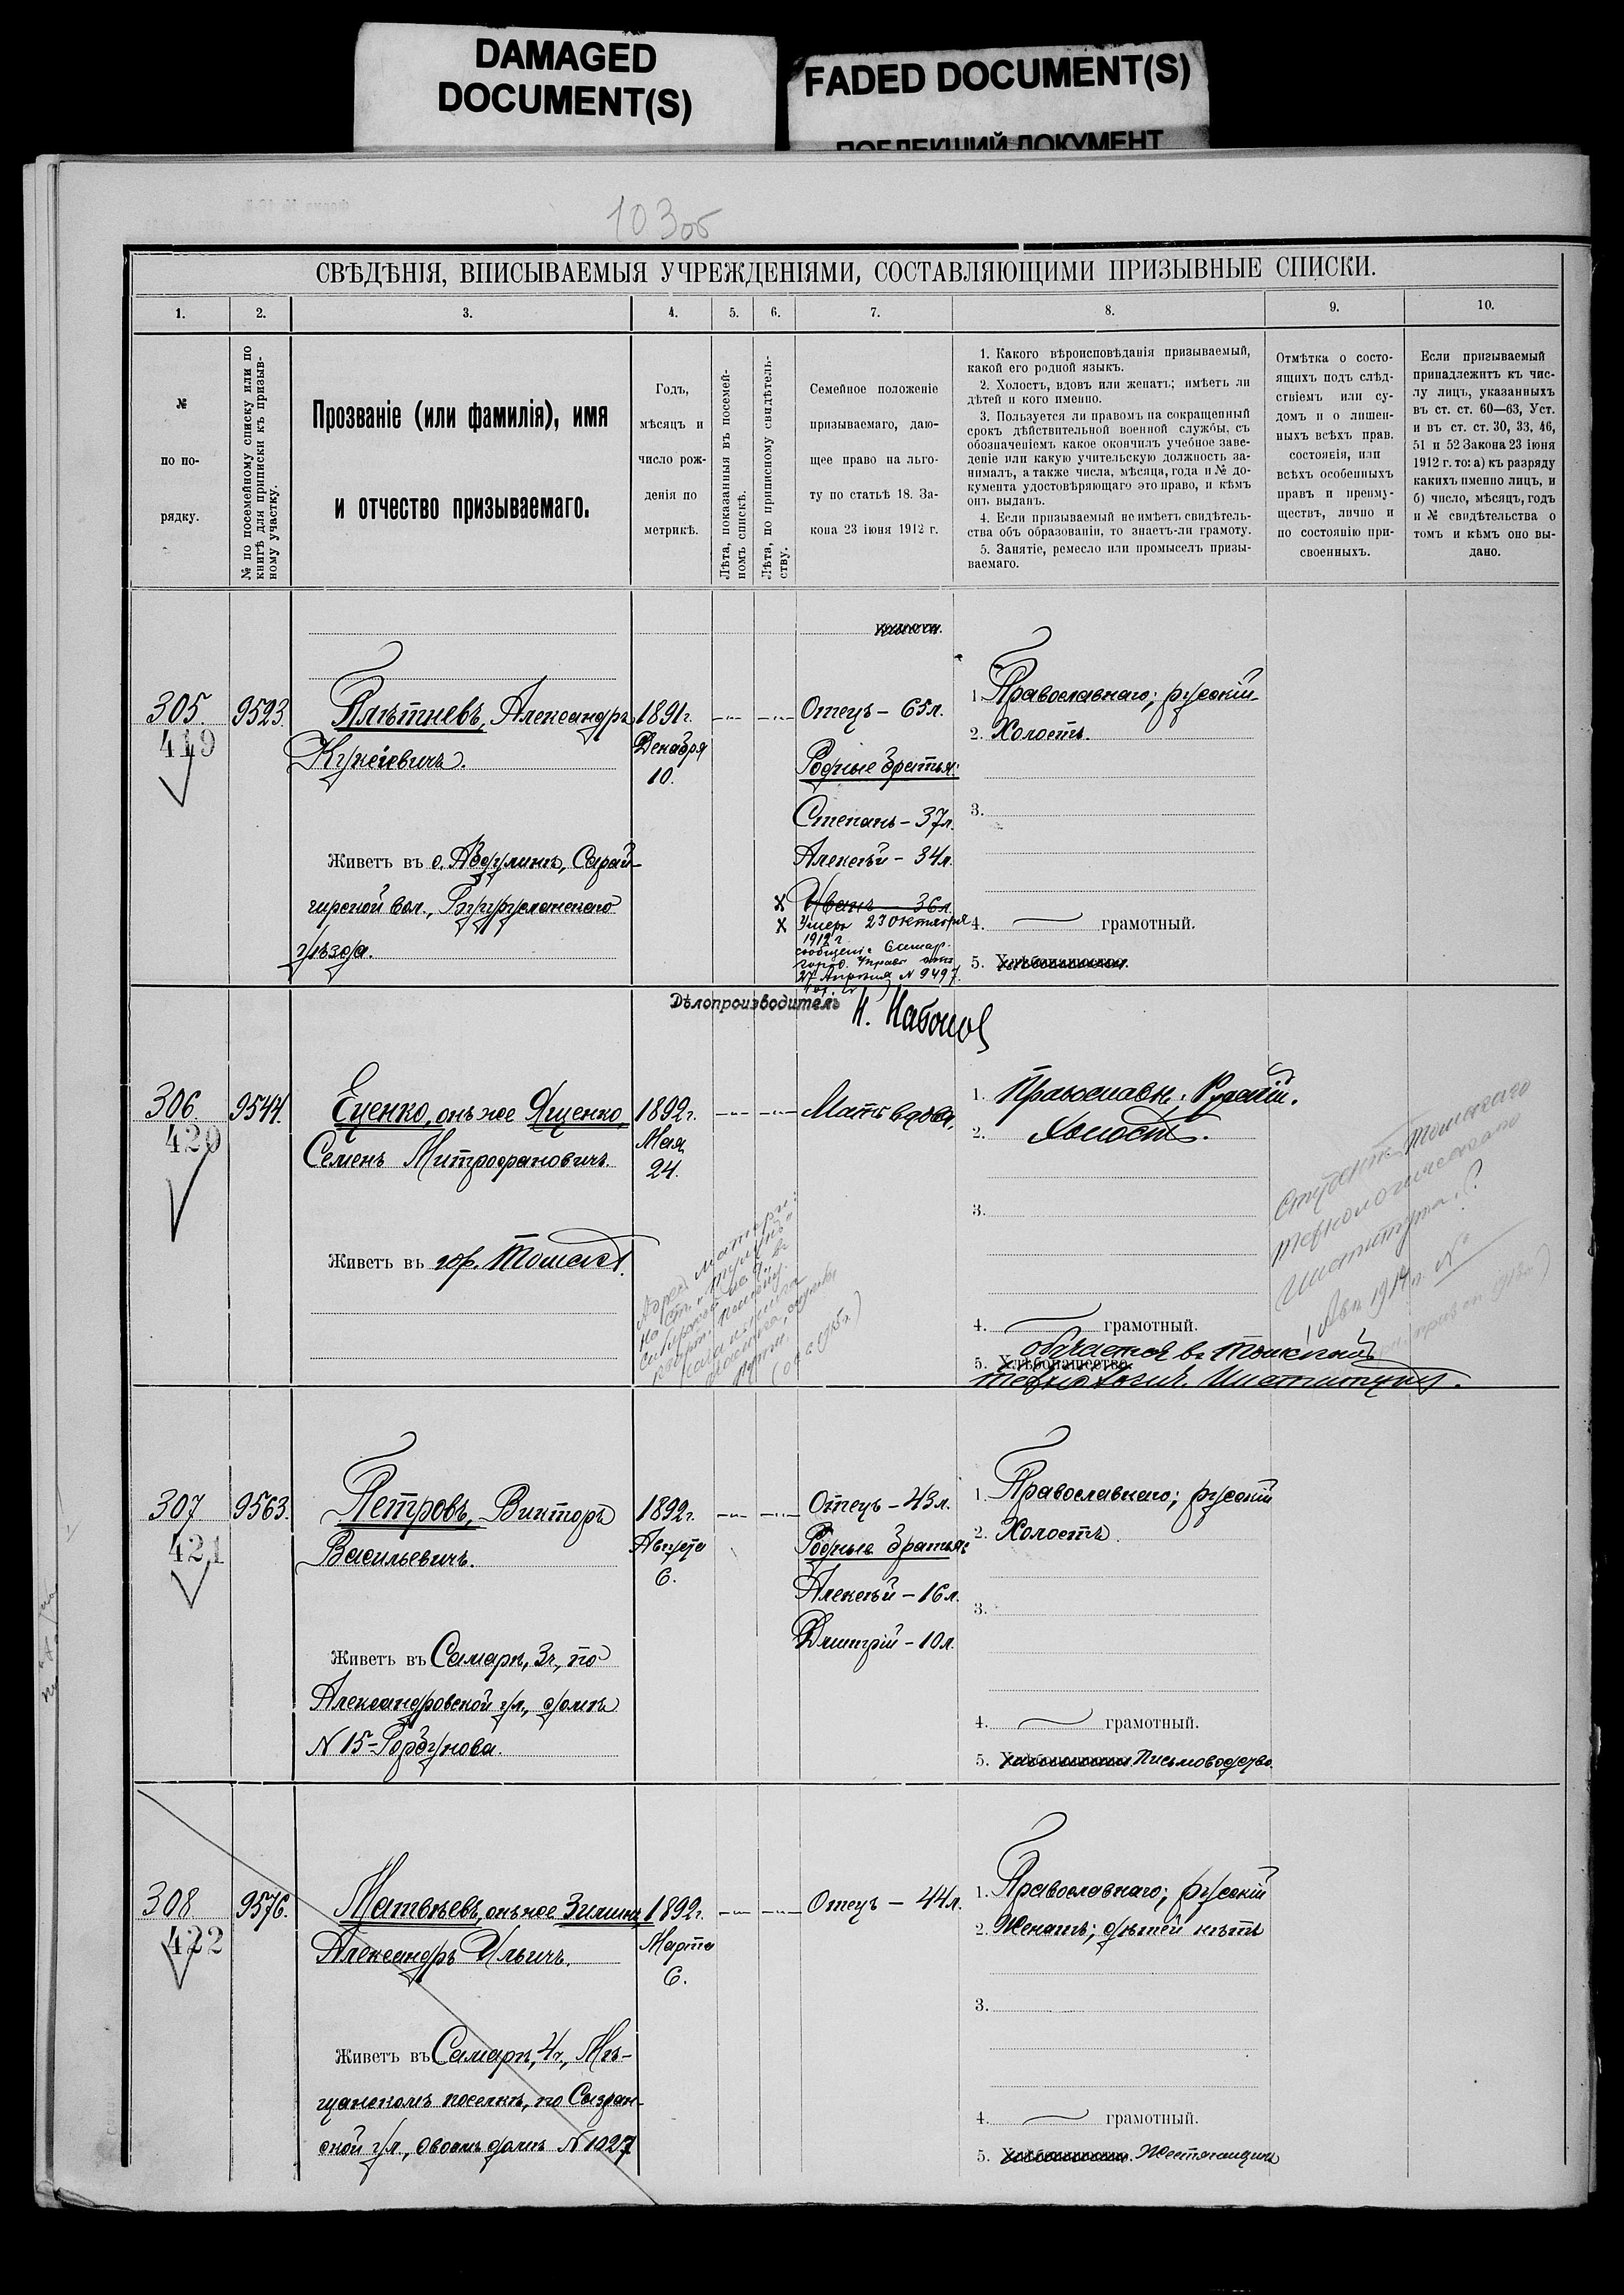 DAMAGED
DOCUMENT(S)
FADED DOCUMENT(S)
ПОБЛЕКШИЙ ДОКУМЕНТ
103об
СВѢДѢНІЯ, ВПИСЫВАЕМЫЯ УЧРЕЖДЕНІЯМИ, СОСТАВЛЯЮЩИМИ ПРИЗЫВНЫЕ СПИСКИ.
1. 2. 3. 4. 5. 6. 7. 8. 9. 10.
№
по по-
рядку.
№ по посемейному списку или по
книгѣ для приписки къ призыв-
ному участку.
Прозваніе (или фамилія), имя
и отчество призываемаго.
Годъ,
мѣсяцъ и
число рож-
денія по
метрикѣ.
Лѣта, показанныя въ посемей-
номъ спискѣ.
Лѣта, по приписному свидѣтель-
ству.
Семейное положеніе
призываемаго, даю-
щее право на льго-
ту по статьѣ 18. За-
кона 23 іюня 1912 г.
1. Какого вѣроисповѣданія призываемый,
какой его родной языкъ.
2. Холостъ, вдовъ или женатъ; имѣетъ ли
дѣтей и кого именно.
3. Пользуется ли правомъ на сокращенный
срокъ дѣйствительной военной службы, съ
обозначеніемъ какое окончилъ учебное заве-
деніе или какую учительскую должность за-
нималъ, а также числа, мѣсяца, года и № до-
кумента удостовѣряющаго это право, и кѣмъ
онъ выданъ.
4. Если призываемый не имѣетъ свидѣтель-
ства объ образованіи, то знаетъ-ли грамоту.
5. Занятіе, ремесло или промыселъ призы-
ваемаго.
Отмѣтка о состо-
ящихъ подъ слѣд-
ствіемъ или су-
домъ и о лишен-
ныхъ всѣхъ прав.
состоянія, или
всѣхъ особенныхъ
правъ и преиму-
ществъ, лично и
по состоянію при-
своенныхъ.
Если призываемый
принадлежитъ къ чис-
лу лицъ, указанныхъ
въ ст. ст. 60—63, Уст.
и въ ст. ст. 30, 33, 46,
51 и 52 Закона 23 іюня
1912 г. то: а) къ разряду
какихъ именно лицъ, и
б) число, мѣсяцъ, годъ
и № свидѣтельства о
томъ и кѣмъ оно вы-
дано.
305. 9523.
419
Плѣтневъ, Александръ
Кузьмичъ.
Живетъ въ с. Абдулинѣ, Сарай-
гирской вол., Бугурусланскаго
уѣзда.
1891г.
Декабря
10.
Отецъ - 65л.
Родные братья:
Степанъ - 37л.
Алексѣй - 34л.
Иванъ 36л.
Умеръ 23 октября
1912 г
сообщеніе Самар.
город. Управы отъ
27 Апрѣля N 9497
1. Православнаго; русскій
2. Холостъ.
3.
4. грамотный.
5. Хлѣбопашество.
Дѣлопроизводитель
306. 9544.
420
Еценко, онъ же Яценко,
Семенъ Митрофановичъ.
Живетъ въ гор. Томскѣ.
1892г.
Мая
24.
Мать вдова.
1. Православн. Русскій.
2. Холостъ.
3.
4. грамотный.
5. Хлѣбопашество.
обучается въ Томскомъ
технологич. Институтѣ.
Студентъ Томскаго
технологическаго
Института.
307 9563.
421
Петровъ, Викторъ
Васильевичъ.
Живетъ въ Самарѣ, 3ч., по
Александровской ул., домъ
N 15 - Горбунова.
1892г.
Августа
6.
Отецъ - 43л.
Родные братья:
Алексѣй - 16л.
Дмитрій - 10л.
1. Православнаго; русскій
2. Холостъ.
3.
4. грамотный.
5. Хлѣбопашество. Письмоводство.
308 9576.
422
Матвѣевъ, онъ же Зиминъ
Александръ Ильичъ.
Живетъ въ Самарѣ, 4ч., Мѣ-
щанскомъ поселкѣ, по Сызран-
ской ул., своемъ домѣ N 1027
1892г.
Марта
6.
Отецъ - 44л.
1. Православнаго; русскій
2. Женатъ; дѣтей нѣтъ
3.
4. грамотный.
5. Хлѣбопашество. Жестянщикъ